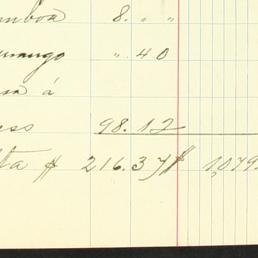 mboa 8. " "
urango " 40
sa á
ess 98.12
ta $ 216.37 $ 1,079